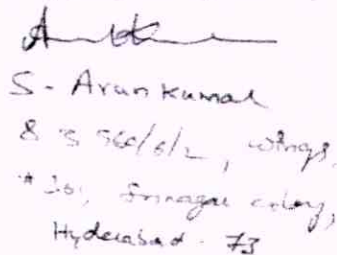 S. Arun Kumar
8 3 960/6/2, wings,
Srinagar colony,
Hyderabad - 73